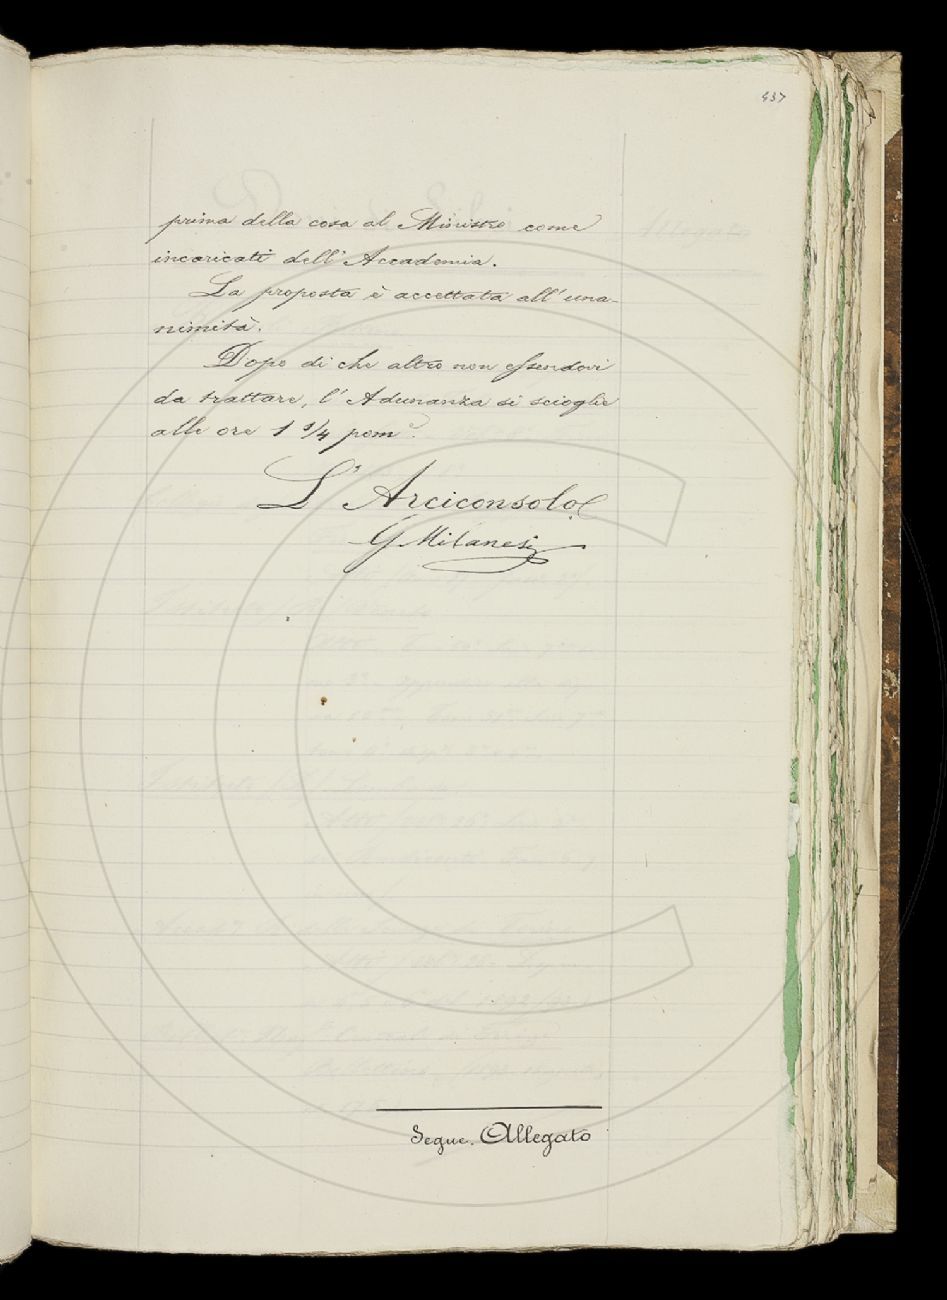 437
prima della cosa al Ministro come
incaricati dell'Accademia.
La proposta è accettata all'una-
nimità.
Dopo di che altro non essendovi
da trattare, l'Adunanza si scioglie
alle ore 1 3/4 pom.e
L'Arciconsolo
G Milanesi
Segue. Allegato